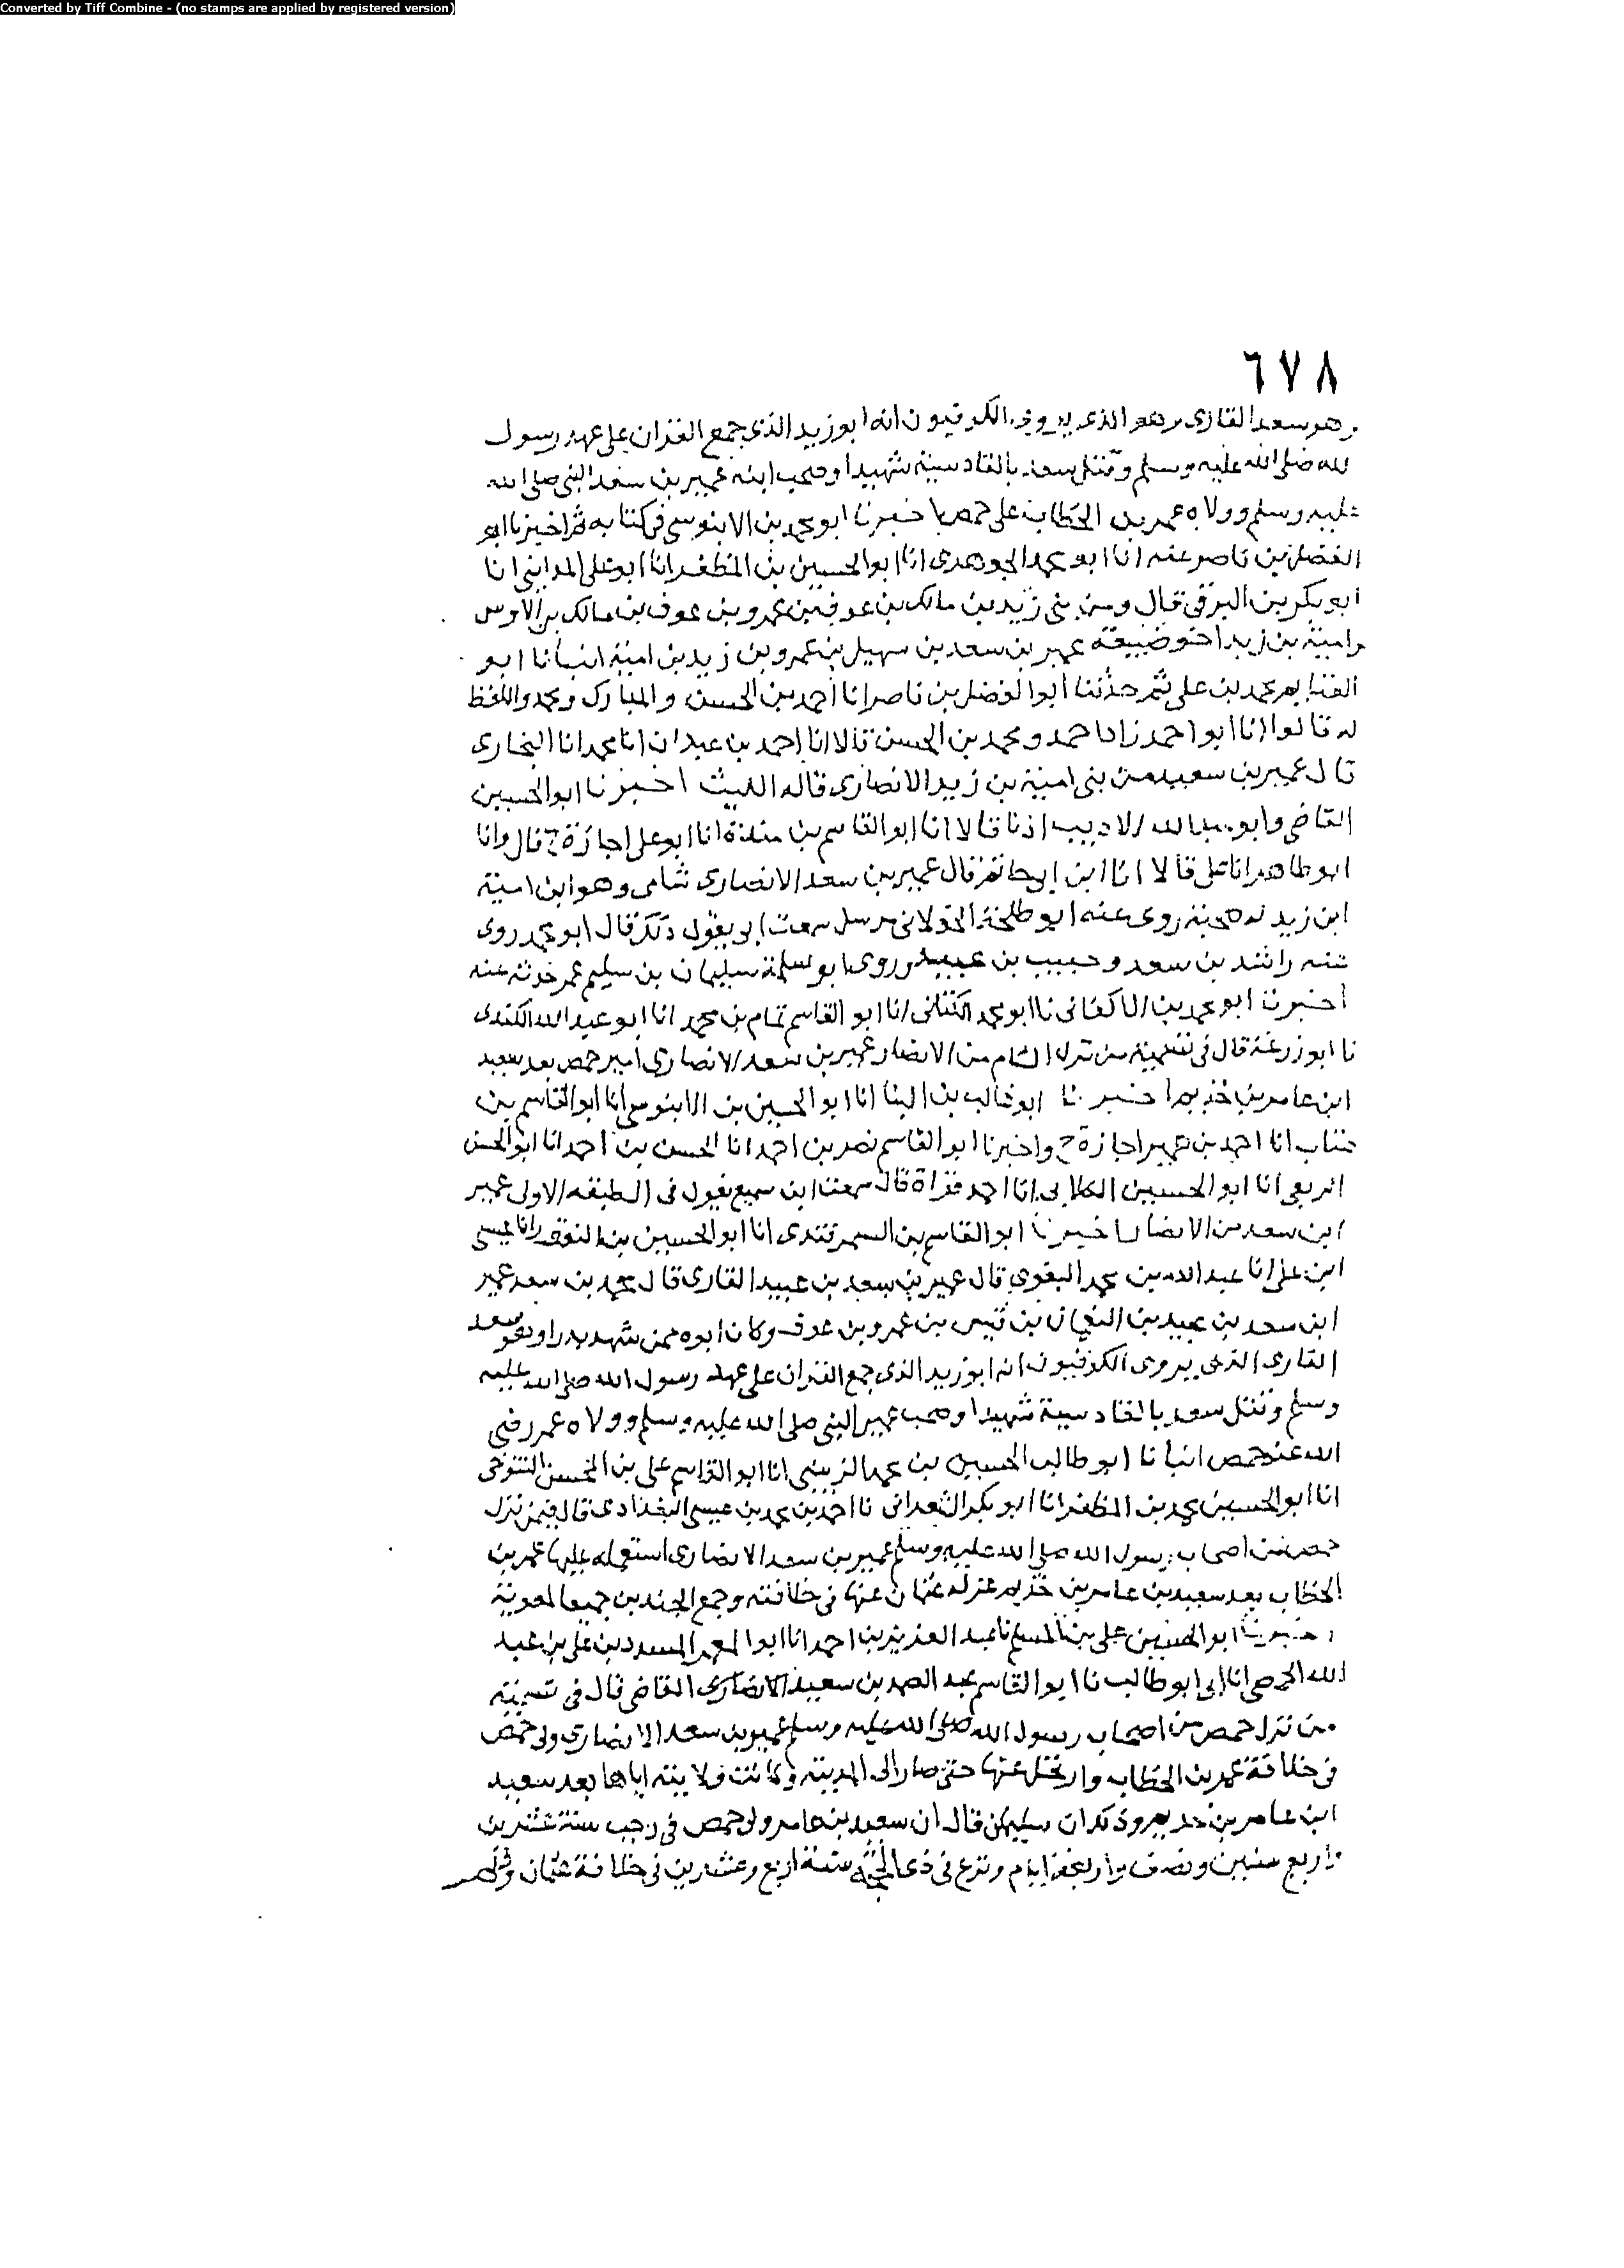 Converted by Tiff Combine - (no stamps are applied by registered version)
٦٧٨
وهو سعد القارى وهو الذى يروى الكوفيون انه ابو زيد الذى جمع القران على عهد رسول
لله صلى الله عليه وسلم وقتل سعد بالقادسية شهيدا وصحب ابنه عمير بن سعد النبى صلى الله
عليه وسلم وولاه عمر بن الخطاب على حمص اخبرنا ابو محمد بن الابنوسى فى كتابه ثم اخبرنا ابو
الفضل بن ناصر عنه انا ابو محمد الجوهدى انا ابو الحسين بن المظفر انا ابو على المداينى انا
ابو بكر بن البرقى قال ومن بنى زيد بن مالك بن عوف بن عمرو بن عوف بن مالك بن الاوس
وامية بن زيد اخو ضبيعة عمير بن سعد بن سهيل بن عمرو بن زيد بن امية انبانا ابو
الغنايم محمد بن على ثم حدثنا ابو الفضل بن ناصر انا احمد بن الحسن والمبارك ومحمد واللفظ
له قالوا انا ابو احمد زاد احمد ومحمد بن الحسن قالا انا احمد بن عبدان انا محمد انا البخارى
قال عمير بن سعيد من بنى امية بن زيد الانصارى قاله الليث اخبرنا ابو الحسين
القاضى وابو عبد الله الاديب اذنا قالا انا ابو القاسم بن مندة انا ابو على اجازة ح قال وانا
ابو طاهر انا على قالا انا ابن ابى حاتم قال عمير بن سعد الانصارى شامى وهو ابن امية
ابن زيد له صحبة روى عنه ابو طلحة الخولانى مرسل سمعت ابى يقول ذلك قال ابو محمد روى
عنه راشد بن سعد وحبيب بن عبيد وروى ابو سلمة سليمان بن سليم عمن حدثه عنه
اخبرنا ابو محمد بن الاكفانى نا ابو محمد الكتانى انا ابو القاسم تمام بن محمد انا ابو عبد الله الكندى
نا ابو زرعة قال فى تسمية من نزل الشام من الانصار عمير بن سعد الانصارى امير حمص بعد سعيد
ابن عامر بن خذيم اخبرنا ابو غالب بن البنا انا ابو الحسين بن الابنوسى انا ابو القاسم بن
عتاب انا احمد بن عمير اجازة ح واخبرنا ابو القاسم نصر بن احمد انا الحسن بن احمد انا ابو الحسن
الربعى انا ابو الحسين الكلابى انا احمد قراة قال سمعت ابن سميع يقول فى الطبقه الاولى عمير
ابن سعد من الانصار اخبرنا ابو القاسم بن السمرقندى انا ابو الحسين بن النقور انا عيسى
ابن على انا عبد الله بن محمد البغوى قال عمير بن سعد بن عبيد القارى قال محمد بن سعد عمير
ابن سعد بن عبيد بن النعمان بن قيس بن عمرو بن عوف وكان ابوه ممن شهد بدرا وهو سعد
القارى الذى يروى الكوفيون انه ابو زيد الذى جمع القران على عهد رسول الله صلى الله عليه
وسلم وقتل سعد بالقادسية شهيدا وصحب عمير النبى صلى الله عليه وسلم وولاه عمر رضى
الله عنه حمص انبانا ابو طالب الحسين بن محمد الزينبى انا ابو القاسم على بن المحسن التنوخى
انا ابو الحسين محمد بن المظفر انا ابو بكر الشعرانى نا احمد بن محمد بن عيسى البغدادى قال فيمن نزل
حمص من اصحاب رسول الله صلى الله عليه وسلم عمير بن سعد الانصارى استعمله عليها عمر بن
الخطاب بعد سعيد بن عامر بن خذيم عزله عثمان عنها فى خلافته وجمع الجندين جميعا لمعوية
اخبرنا ابو الحسين على بن المسلم نا عبد العزيز بن احمد انا ابو المعمر المسدد بن على بن عبد
الله الحمصى انا ابى ابو طالب نا ابو القاسم عبد الصمد بن سعيد الانصارى القاضى قال فى تسمية
من نزل حمص من اصحاب رسول الله صلى الله عليه وسلم عمير بن سعد الانصارى ولى حمص
فى خلافة عمر بن الخطاب وارتحل عنها حتى صار الى المدينه وكانت ولايته اياها بعد سعيد
ابن عامر بن حديم وذكر ان سليمان قال ان سعيد بن عامر ولى حمص فى رجب سنة عشرين
واربع سنين ونصف واربعة ايام ونزع فى ذى الحجة سنة اربع وعشرين فى خلافة عثمان